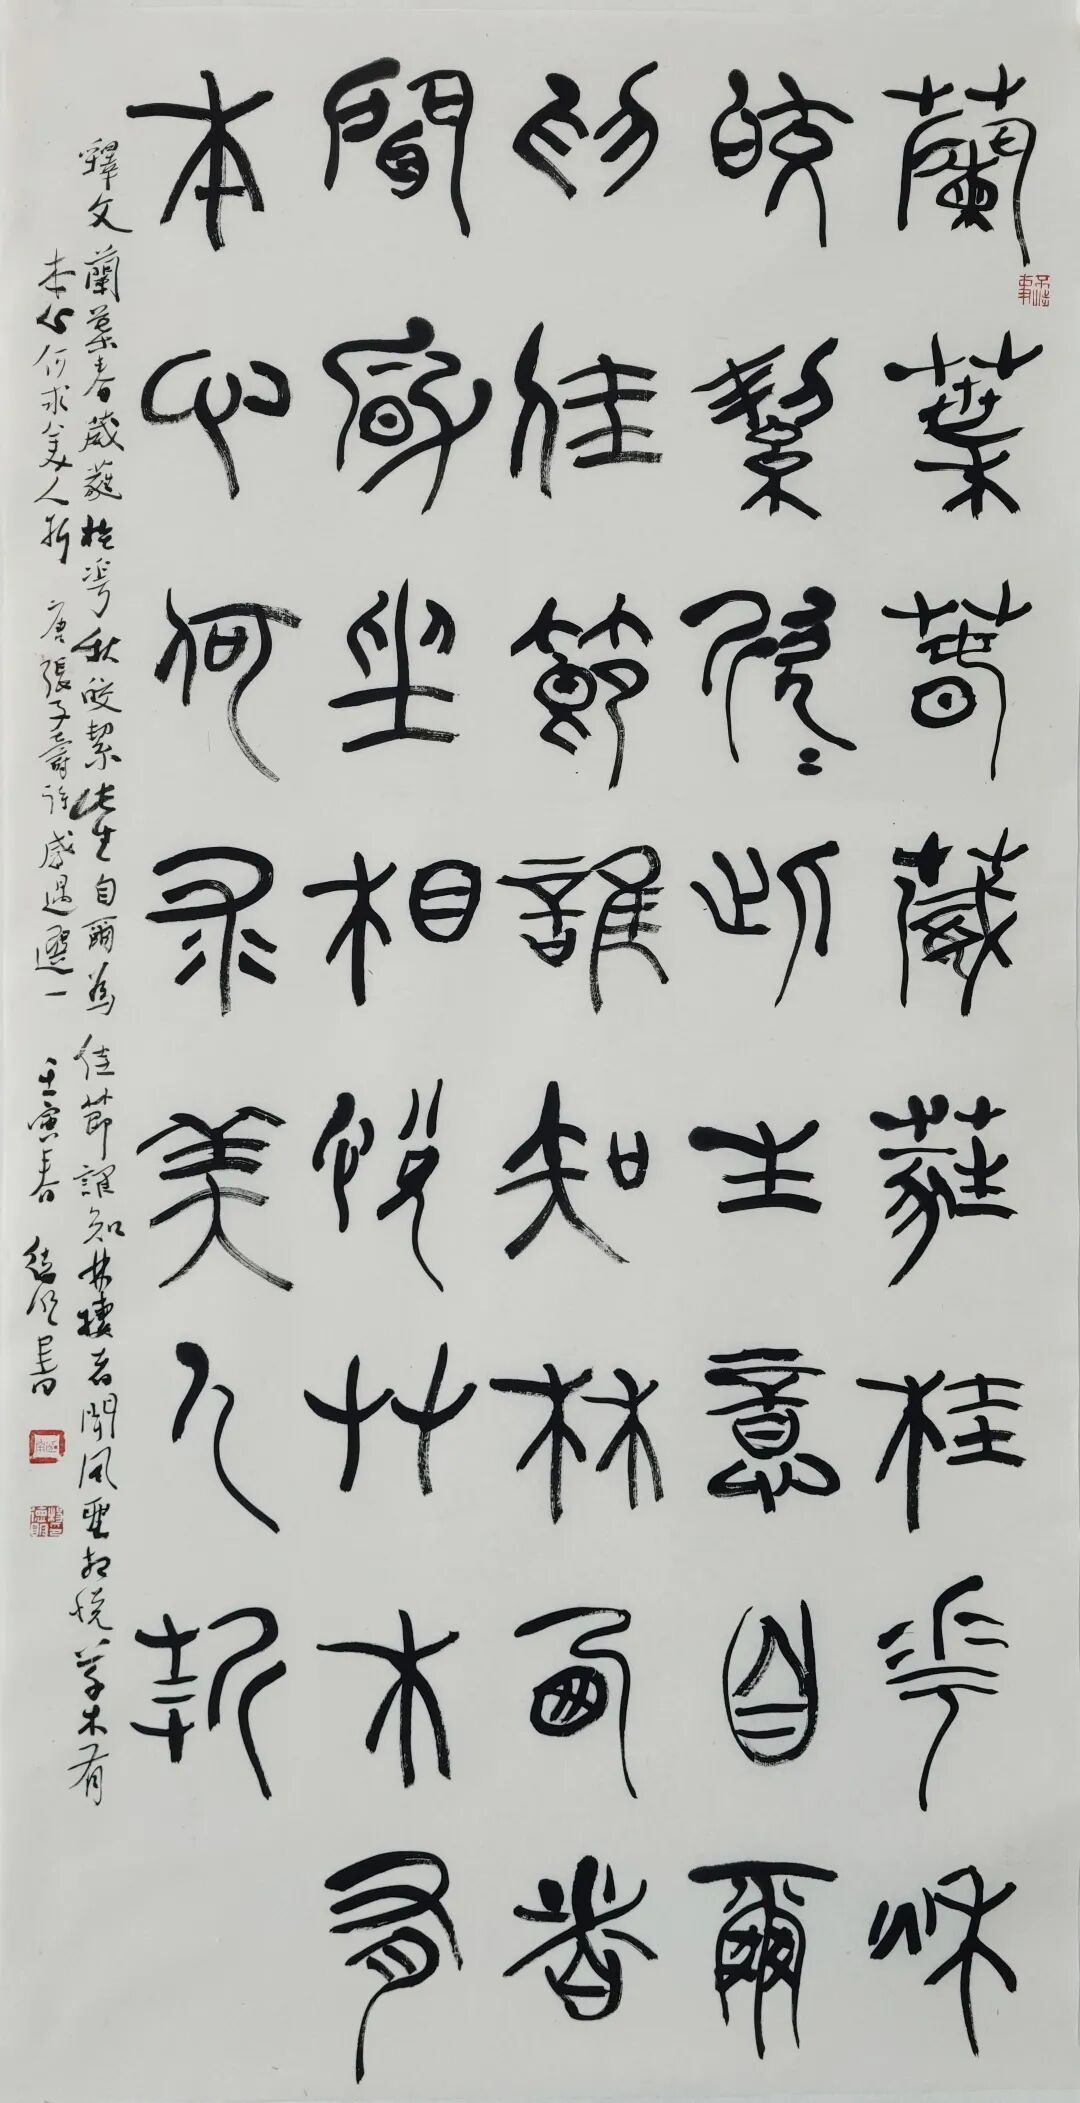 蘭葉春葳蕤桂華秋
皎絜欣=此生意自爾
為佳節誰知林西者
聞風坐相悅艸木有
本心何求美人折
釋文 蘭葉春葳蕤桂華秋皎絜此生自爾為佳節誰知林棲者聞風坐相悅草木有
本心何求美人折 唐張子壽詩感遇選一 壬寅春 德明書